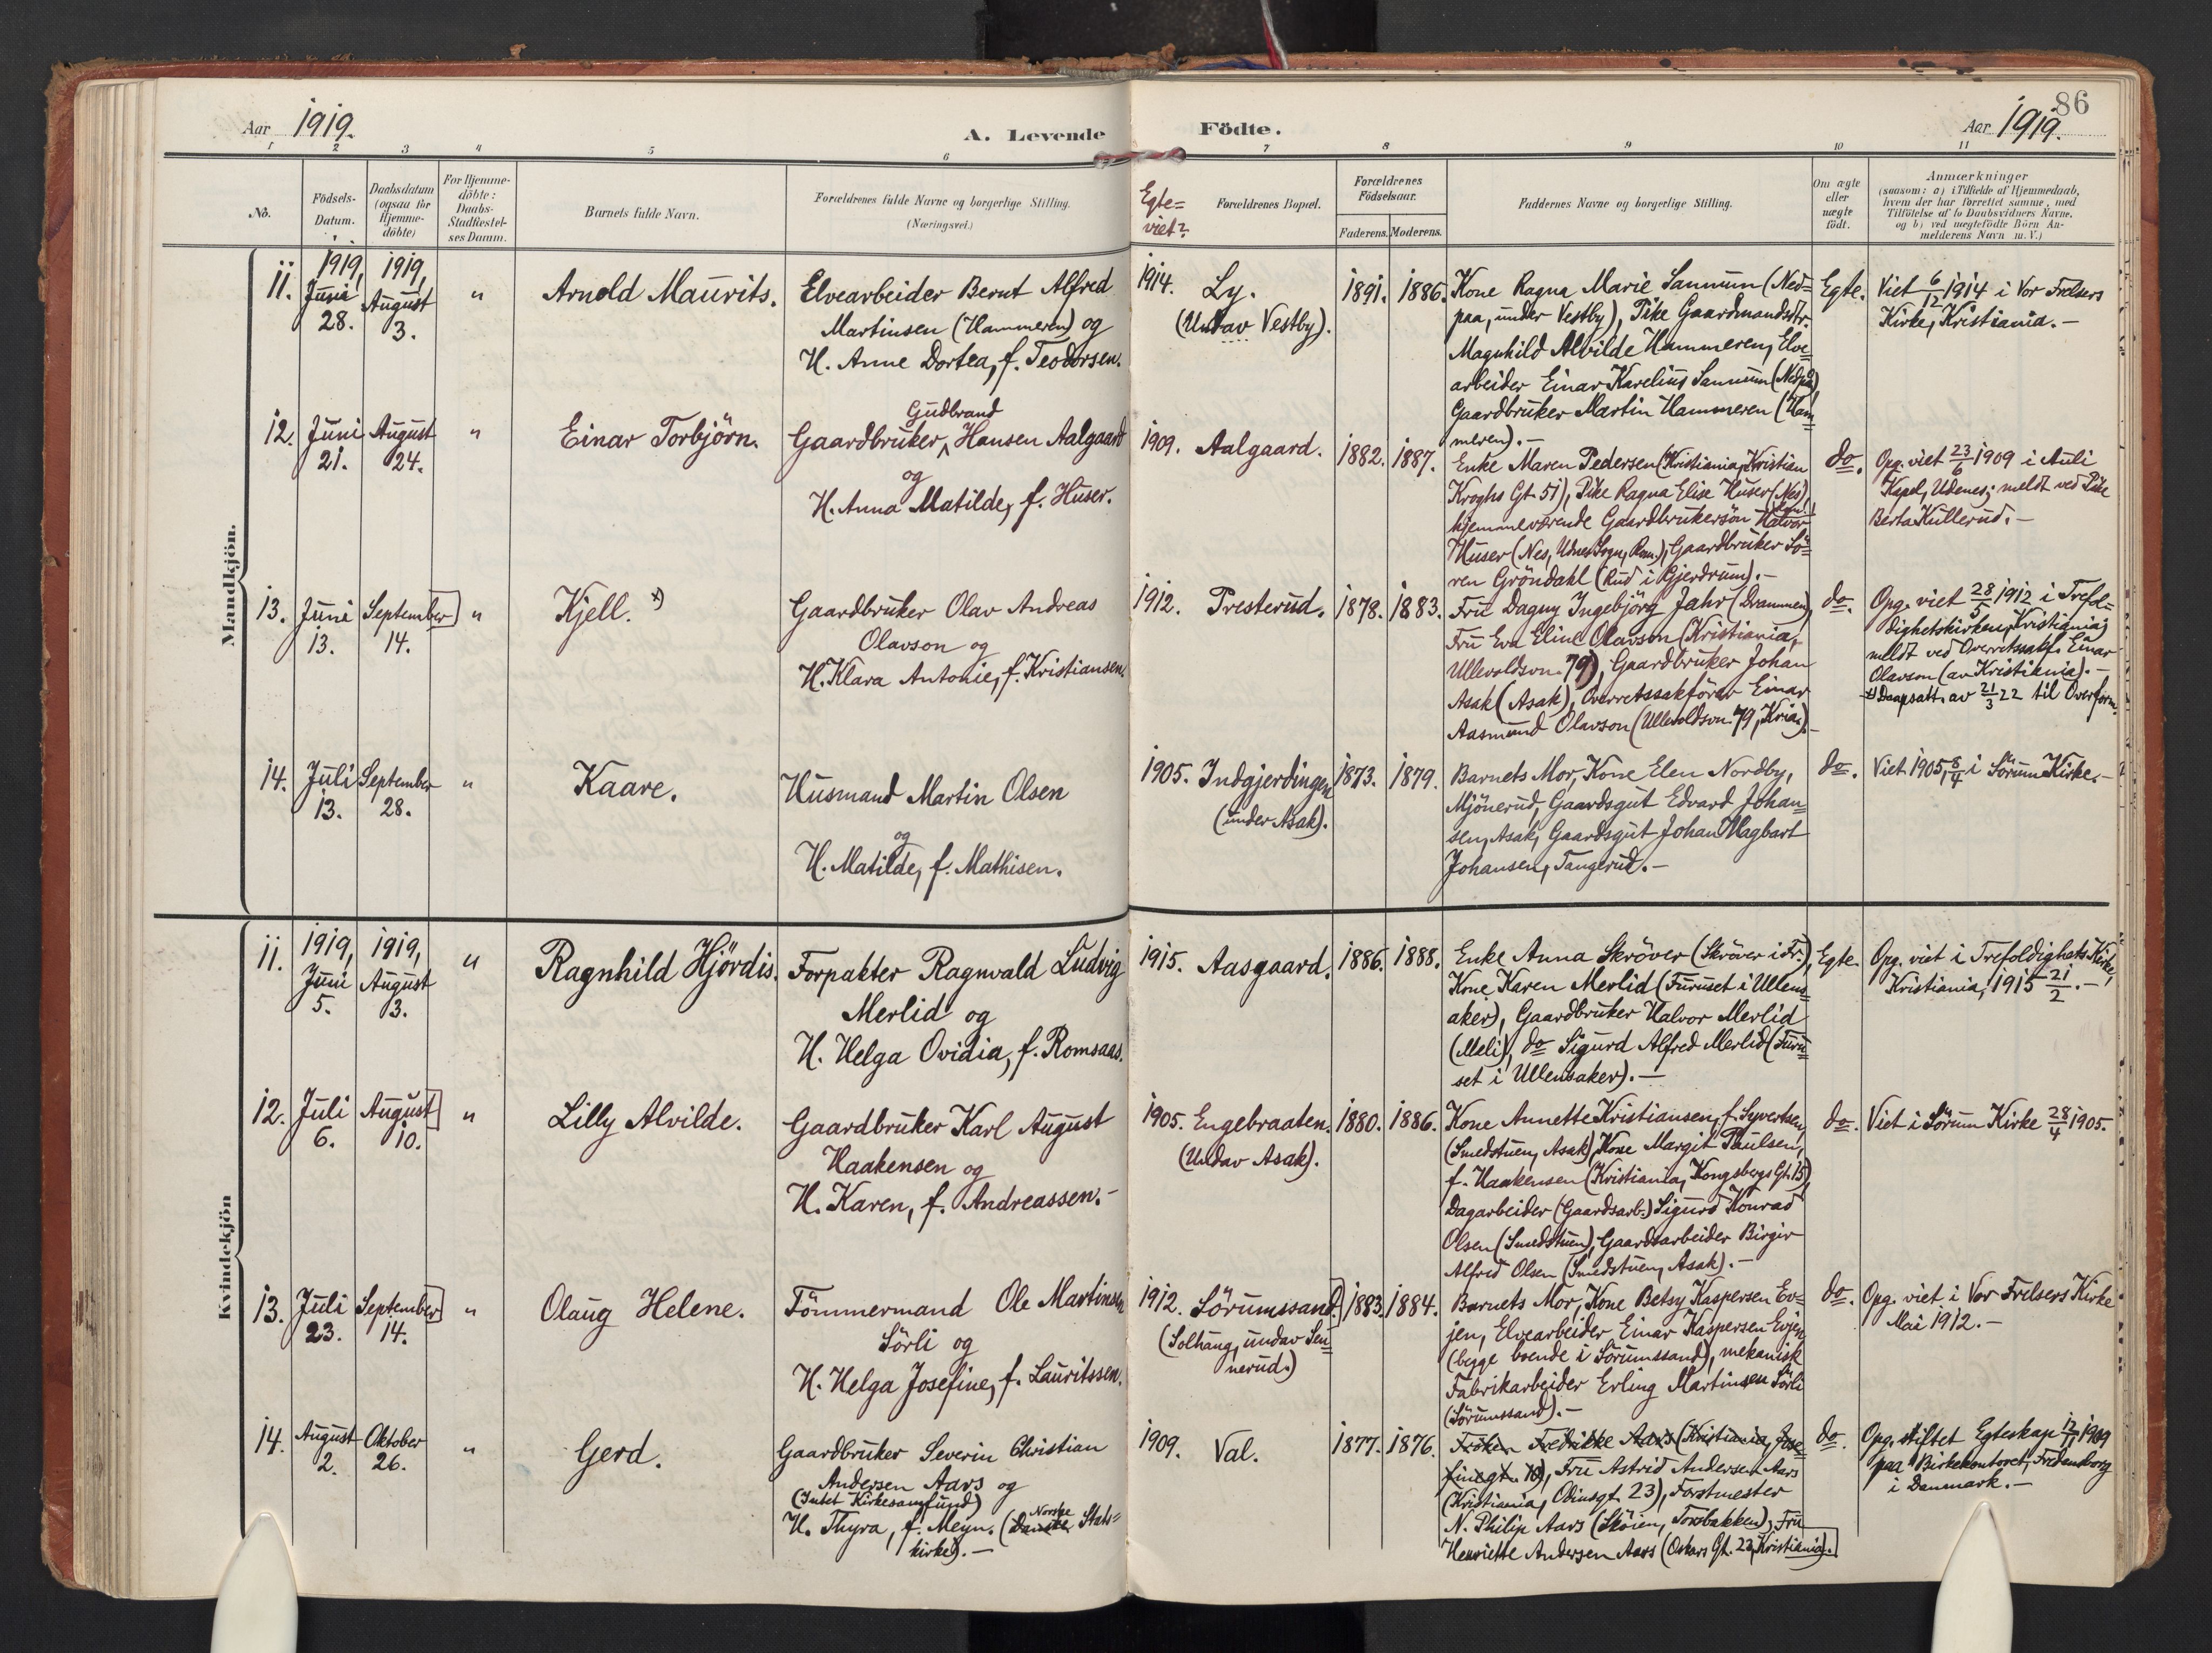 86
Aar 1919.
A. Levende Födte.
Aar 1919.
1 2 3 4 5 6 7 8 9 10 11
No.
Födsels-
Datum.
Daabsdatum
(ogsaa for
Hjemme-
döbte)
For Hjemme-
döbte:
Daabs-
Stadfæstel-
ses Datum.
Barnets fulde Navn.
Forældrenes fulde Navne og borgerlige Stilling.
(Næringsvei.)
Egte-
viet?
Forældrenes Bopæl.
Forældrenes
Födselsaar.
Faderens. Moderens.
Faddernes Navne og borgerlige Stilling.
Om ægte
eller
uægte
födt.
Anmærkninger
(saasom: a) i Tilfælde af Hjemmedaab,
hvem der har forrettet samme, med
Tilföielse af to Daabsvidners Navne,
og b) ved uægtefödte Börn An-
melderens Navn m.V.)
Mandkjön.
11.
1919,
Juni
28.
1919,
August
3.
"
Arnold Maurits.
Elvearbeider Bernt Alfred
Martinsen (Hammeren) og
H. Anne Dortea, f. Teodorsen.
1914.
Ly.
(Undav Vestby).
1891. 1886.
Kone Ragna Marie Sannum (Ned=
paa, under Vestby), Pike Gaardmandsdtr.
Magnhild Alvilde Hammeren, Elve=
arbeider Einar Karelius Sannum (Nedpaa)
Gaardbruker Martin Hammeren (Ham=
meren).—
Egte.
Viet 6/12 1914 i Vor Frelsers
Kirke, Kristiania.—
12.
Juni
21.
August
24.
"
Einar Torbjörn.
Gudbrand
Gaardbruker Hansen Aalgaard
og
H. Anna Matilde, f. Huser.
1909.
Aalgaard.
1882. 1887.
Enke Maren Pedersen (Kristiania, Kristian
Kroghs Gt. 51), Pike Ragna Elise Huser (Nes),
hjemmeværende Gaardbrukersön Halvor
Huser (Nes, Udnes Sogn, Rom.), Gaardbruker Sö=
ren Gröndahl (Rud i Gjerdrum).—
do.
Opg. viet 23/6 1909 i Auli
Kapel, Udenes; meldt ved Pike
Berta Kullerud.—
13.
Juni
13.
September
14.
"
Kjell. x)
Gaardbruker Olav Andreas
Olavson og
H. Klara Antonie, f. Kristiansen.
1912.
Presterud.
1878. 1883.
Fru Dagny Ingebjörg Jahr (Drammen),
Fru Eva Eline Olavson (Kristiania,
Ullevoldsvn. 79), Gaardbruker Johan
Asak (Asak), Overretssakförer Einar
Aasmund Olavson (Ullevoldsvn. 79, Kria.).—
do.
Opg. viet 28/5 1912 i Trefol=
dighetskirken, Kristiania;
meldt ved Overretssakf. Einar
Olavson (av Kristiania).—
x) Daapsatt. av 21/3 22 til Overform.
14.
Juli
13.
September
28.
"
Kaare.
Husmand Martin Olsen
og
H. Matilde, f. Mathisen.
1905.
Indgjerdingen
(under Asak).
1873. 1879.
Barnets Mor, Kone Elen Nordby,
Mjönerud, Gaardsgut Edvard Johan=
sen, Asak, Gaardsgut Johan Magbart
Johansen, Tangerud.—
do.
Viet 1905 8/4 i Sörum Kirke.—
Kvindekjön
11.
1919,
Juni
5.
1919,
August
3.
"
Ragnhild Hjördis.
Forpakter Ragnvald Ludvig
Merlid og
H. Helga Ovidia, f. Romsaas.
1915.
Aasgaard.
1886. 1888.
Enke Anna Skröver (Skröver i Fr.),
Kone Karen Merlid (Furuset i Ullens=
aker), Gaardbruker Halvor Merlid
(Meli), do Sigurd Alfred Merlid (Furu=
set i Ullensaker).—
Egte.
Opg. viet i Trefoldighets Kirke,
Kristiania, 1915 21/2.—
12.
Juli
6.
August
10.
"
Lilly Alvilde.
Gaardbruker Karl August
Haakensen og
H. Karen, f. Andreassen.—
1905.
Engebraaten.
(Undav Asak).
1880. 1886.
Kone Annette Kristiansen, f. Syvertsen,
(Smedstuen, Asak), Kone Margit Paulsen,
f. Haakensen (Kristiania, Kongsbergs Gt. 15),
Dagarbeider (Gaardsarb.) Sigurd Konrad
Olsen (Smedstuen), Gaardsarbeider Birgir
Alfred Olsen (Smedstuen, Asak).—
do.
Viet i Sörum Kirke 28/4 1905.
13.
Juli
23.
September
14.
"
Olaug Helene.
Tömmermand Ole Martinsen
Sörli og
H. Helga Josefine, f. Lauritssen.
1912.
Sörumssand.
(Solhaug, undav Sen=
nerud.)
1883. 1884.
Barnets Mor, Kone Betsy Kaspersen Ev=
jen, Elvearbeider Einar Kaspersen Evjen
(begge boende i Sörumssand), mekanisk
Fabrikarbeider Erling Martinsen Sörli
(Sörumssand).—
do.
Opg. viet i Vor Frelsers Kirke
Mai 1912.—
14.
August
2.
Oktober
26.
"
Gerd.
Gaardbruker Severin Christian
Andersen Aars og
(Intet Kirkesamfund)
H. Thyra, f. Meyn. (Danske Norske Stats=
kirke).—
1909.
Val.
1877. 1876.
Fröken Fredrikke Aars (Kristiania, Jose=
finegt. 10), Fru Astrid Andersen Aars
(Kristiania, Odinsgt. 23), Forstmester
N. Philip Aars (Sköien, Torsbakken), Fru
Henriette Andersen Aars (Oskars Gt. 22, Kristiania).
do.
Opg. stiftet Egteskap 17/11 1909
paa Birkekontoret, Fredensborg
i Danmark.—